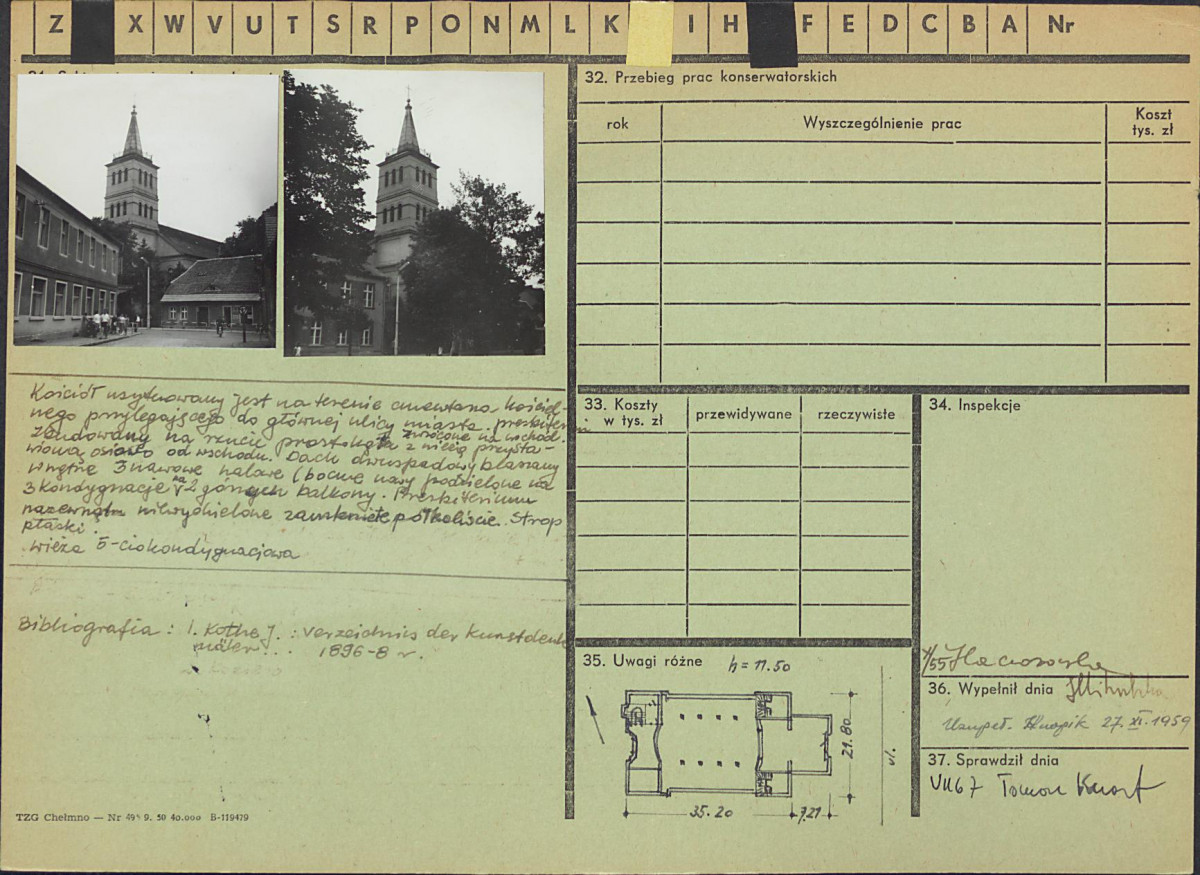 Z X W V U T S R P O N M L K I H F E D C B A Nr
32. Przebieg prac konserwatorskich
rok
Wyszczególnienie prac
Koszt
tys. zł
Kościół usytuowany jest na terenie cmentarza kościel-
nego przylegającego do głównej ulicy miasta. prezbiterium
zwrócone na wschód.
Zbudowany na rzucie prostokąta z wieżą przysta-
wioną osiowo od wschodu. Dach dwuspadowy blaszany
wnętrze 3 nawowe halowe (boczne nawy podzielone na
3 kondygnacje na V-2 górnych balkony. Prezbiterium
nazewnątrz niewydzielone zamknięte półkoliście. Strop
płaski.
wieża 5-ciokondygnacjowa
Bibliografia : 1. Kothe J. : Verzeichnis der Kunstdenk
mäler . . 1896-8 r.
TZG Chełmno — Nr 9. 59 40.000 B-119479
33. Koszty
w tys. zł
przewidywane
rzeczywiste
34. Inspekcje
35. Uwagi różne
h = 11.50
21.80
35.20
7.21
36. Wypełnił dnia
Uzupeł. Knapik 27. XI. 1959
37. Sprawdził dnia
VII 67 Tomon